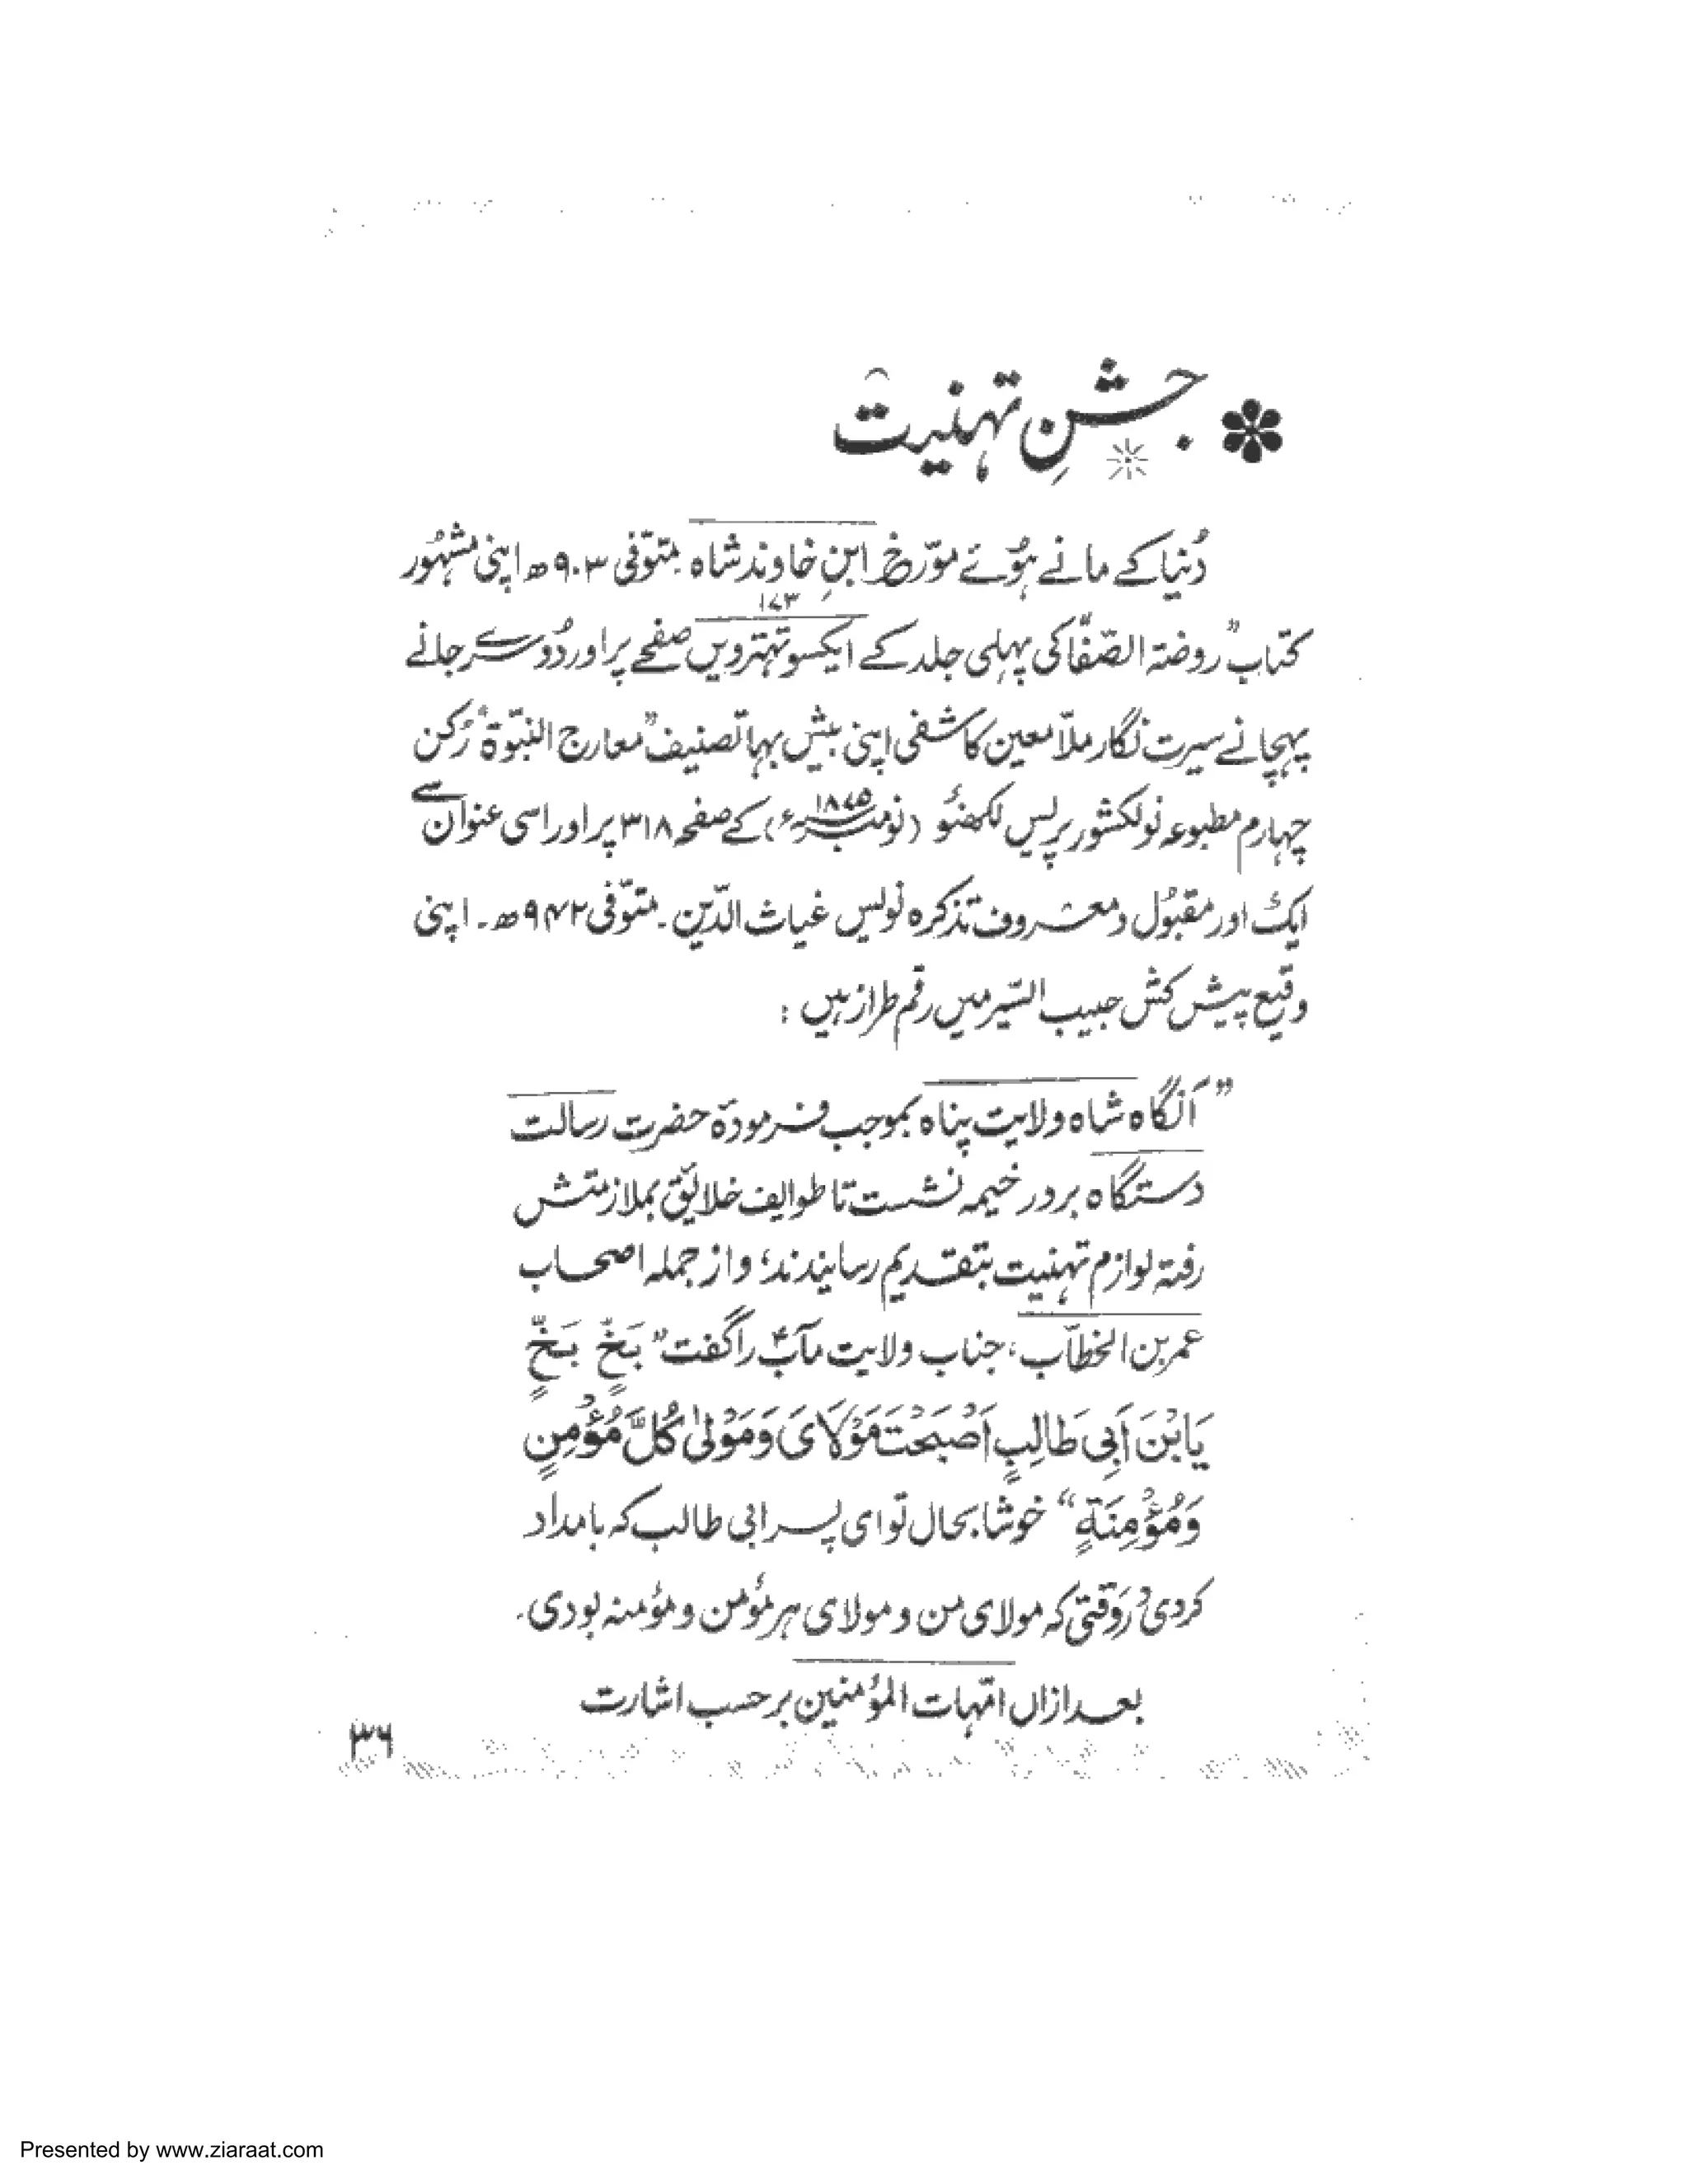 جشنِ تہنیت
دُنیا کے مانے ہوُئے مورّخ ابنِ خاوند شاہ متوفّی ۹۰۳ھ اپنی مشہُور
۱۷۳
کتاب” روضۃ الصّفا“ کی پہلی جلد کے ایکسو تہترویں صفحے پر اور دُوسرے جانے
پہچانے سیرت نگار ملّا معین کاشفی اپنی بیش بہا تصنیف ”معارج النبّوۃ“ رُکن
چہارم مطبوعہ نولکشور پریس لکھنؤ (نومبر ۱۸۷۵ء) کے صفحہ ۳۱۸ پر اور اسی عنوان سے
ایک اور مقبُول و معروف تذکرہ نویس غیاث الدّین۔ متوّفی ۹۴۲ھ۔ اپنی
وقیع پیش کش حبیب السّیر میں رقم طراز ہیں :
” آنگاہ شاہ ولایت پناہ بموجب فرمودہٓ حضرت رسالت
دستگاہ بر در خیمہ نشست تا طوایف خلایٔق بملازمتش
رفتہ لوازم تہنیت بتقدیم رسانیدند؛ و از جملہ اصحاب
عمر بن الخطّاب، جناب ولایت مآبؑ را گفت ” بَخٍّ بَخٍّ
یَا بْنَ اَبِی طَالِبٍ اَصْبَحْتَ مَوْلَایَ وَمَوْلیٰ کُلِّ مُؤْمِنٍ
وَمُؤْمِنَۃٍ“ خوشا بحال تو ای پسر ابی طالب کہ بامداد
کردی در وَقتی کہ مولای من و مولای ہر مؤمن و مؤمنہ بودی۔
بعد ازاں امّہات المؤمنین بر حسب اشارت
۳۶
Presented by www.ziaraat.com